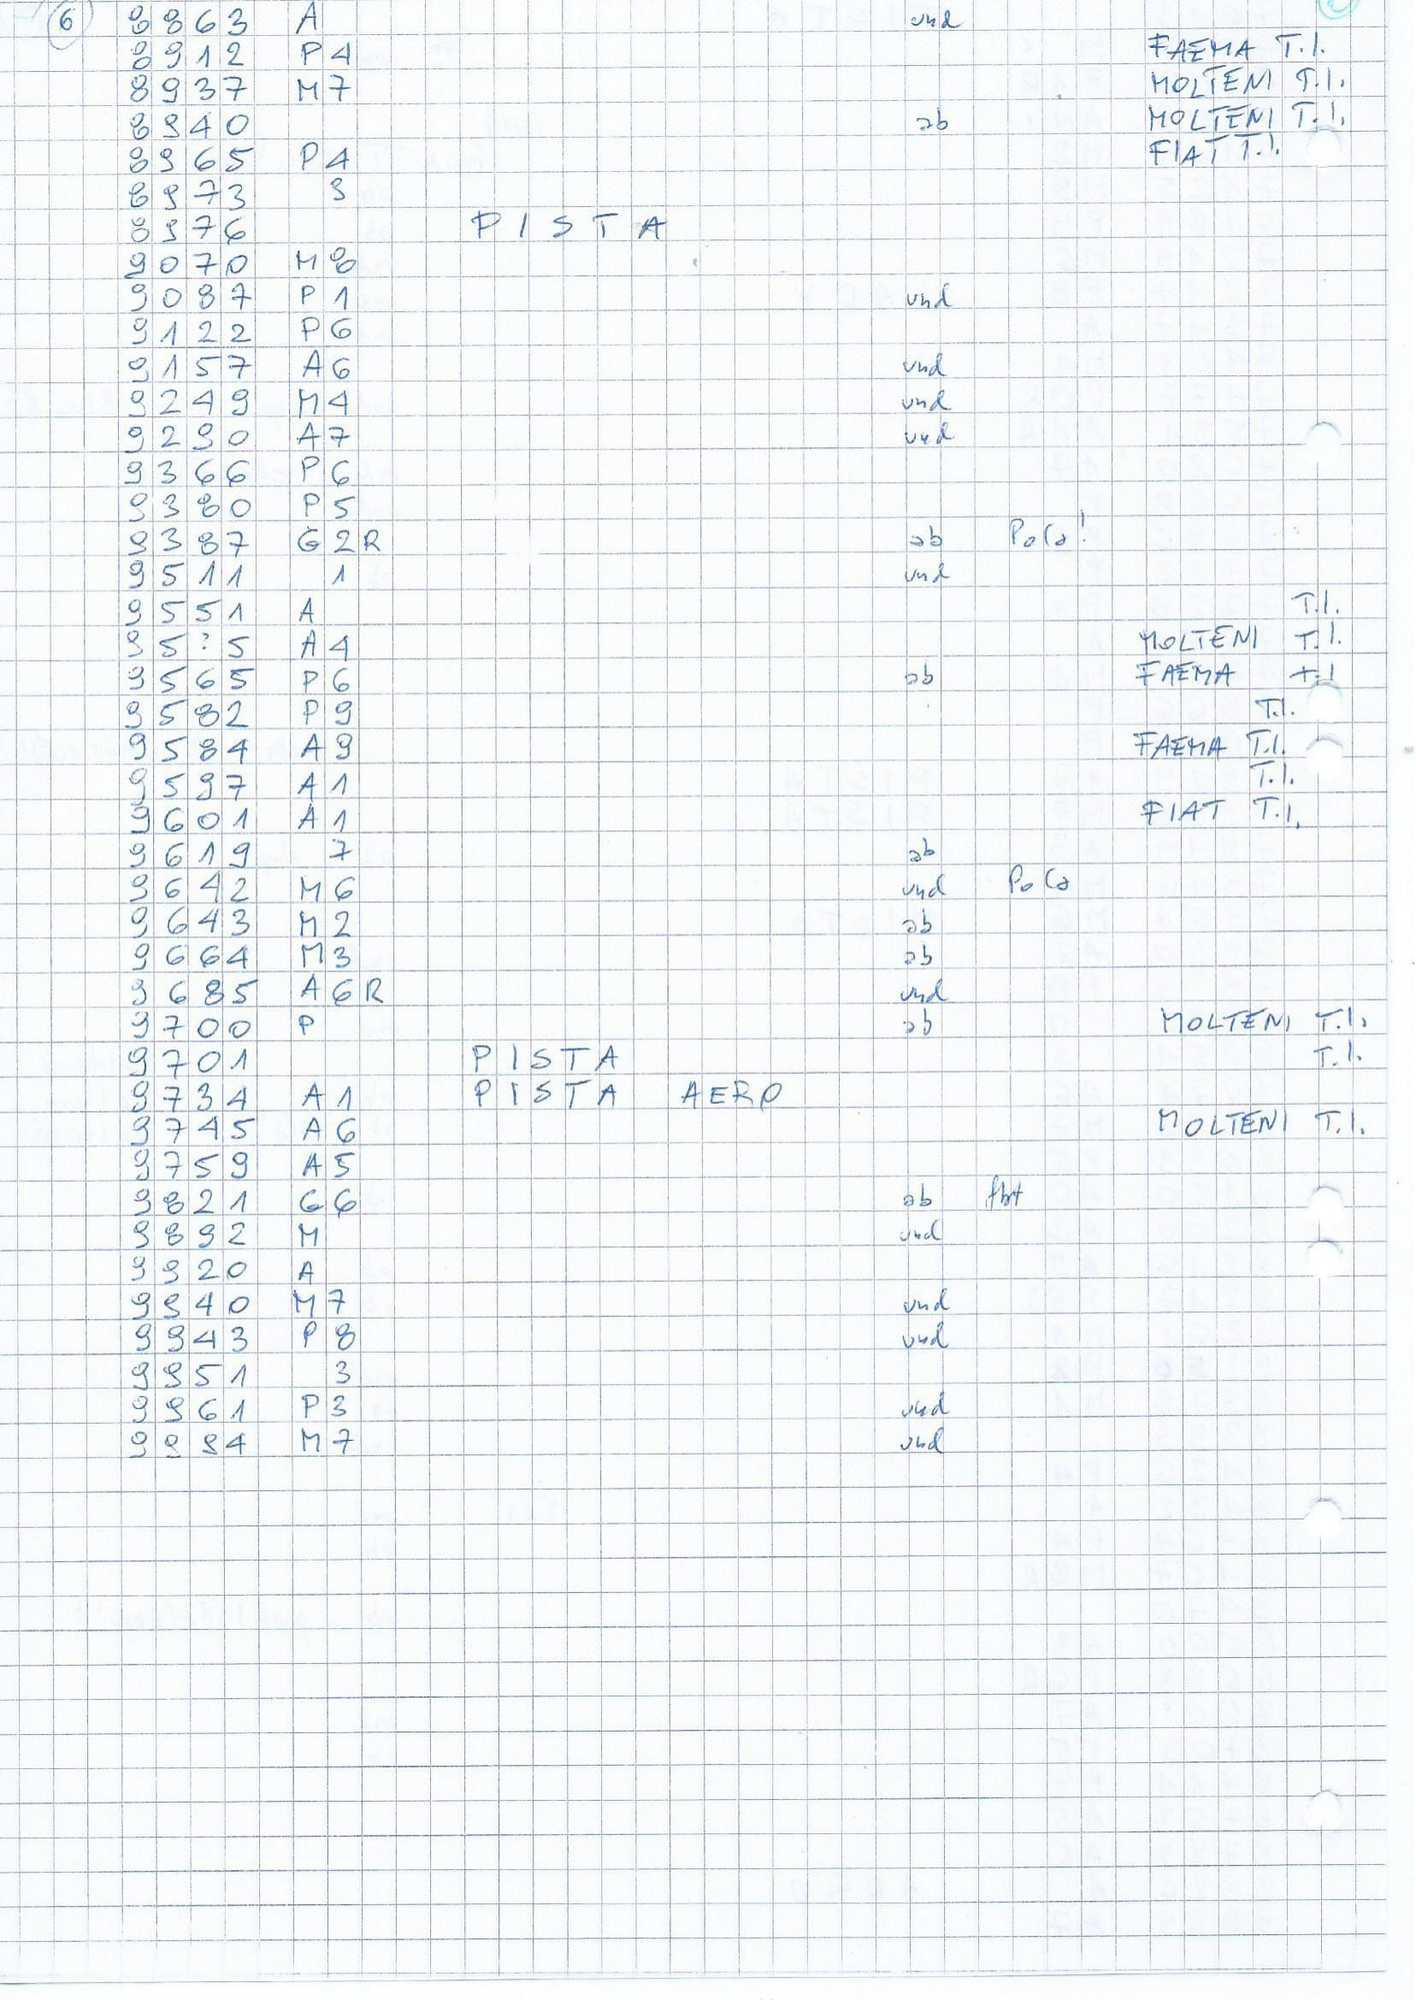 6 8863 A und
8912 P4 FAEMA T.I.
8937 M7 MOLTENI T.I.
8940 ab MOLTENI T.I.
8965 P4 FIAT T.I.
8973 3
8976 PISTA
9070 M8
9087 P1 und
9122 P6
9157 A6 und
9249 M4 und
9290 A7 und
9366 P6
9380 P5
9387 G2R ab PoCa!
9511 1 und
9551 A T.I.
95?5 A4 MOLTENI T.I.
9565 P6 ab FAEMA T.I
9582 P9 T.I.
9584 A9 FAEMA T.I.
9597 A1 T.I.
9601 A1 FIAT T.I.
9619 7 ab
9642 M6 und PoCa
9643 M2 ab
9664 M3 ab
9685 A6R und
9700 P ab MOLTENI T.I.
9701 PISTA T.I.
9734 A1 PISTA AERO
9745 A6 MOLTENI T.I.
9759 A5
9821 G6 ab
9892 M und
9920 A
9940 M7 und
9943 P8 und
9951 3
9961 P3 und
9984 M7 und